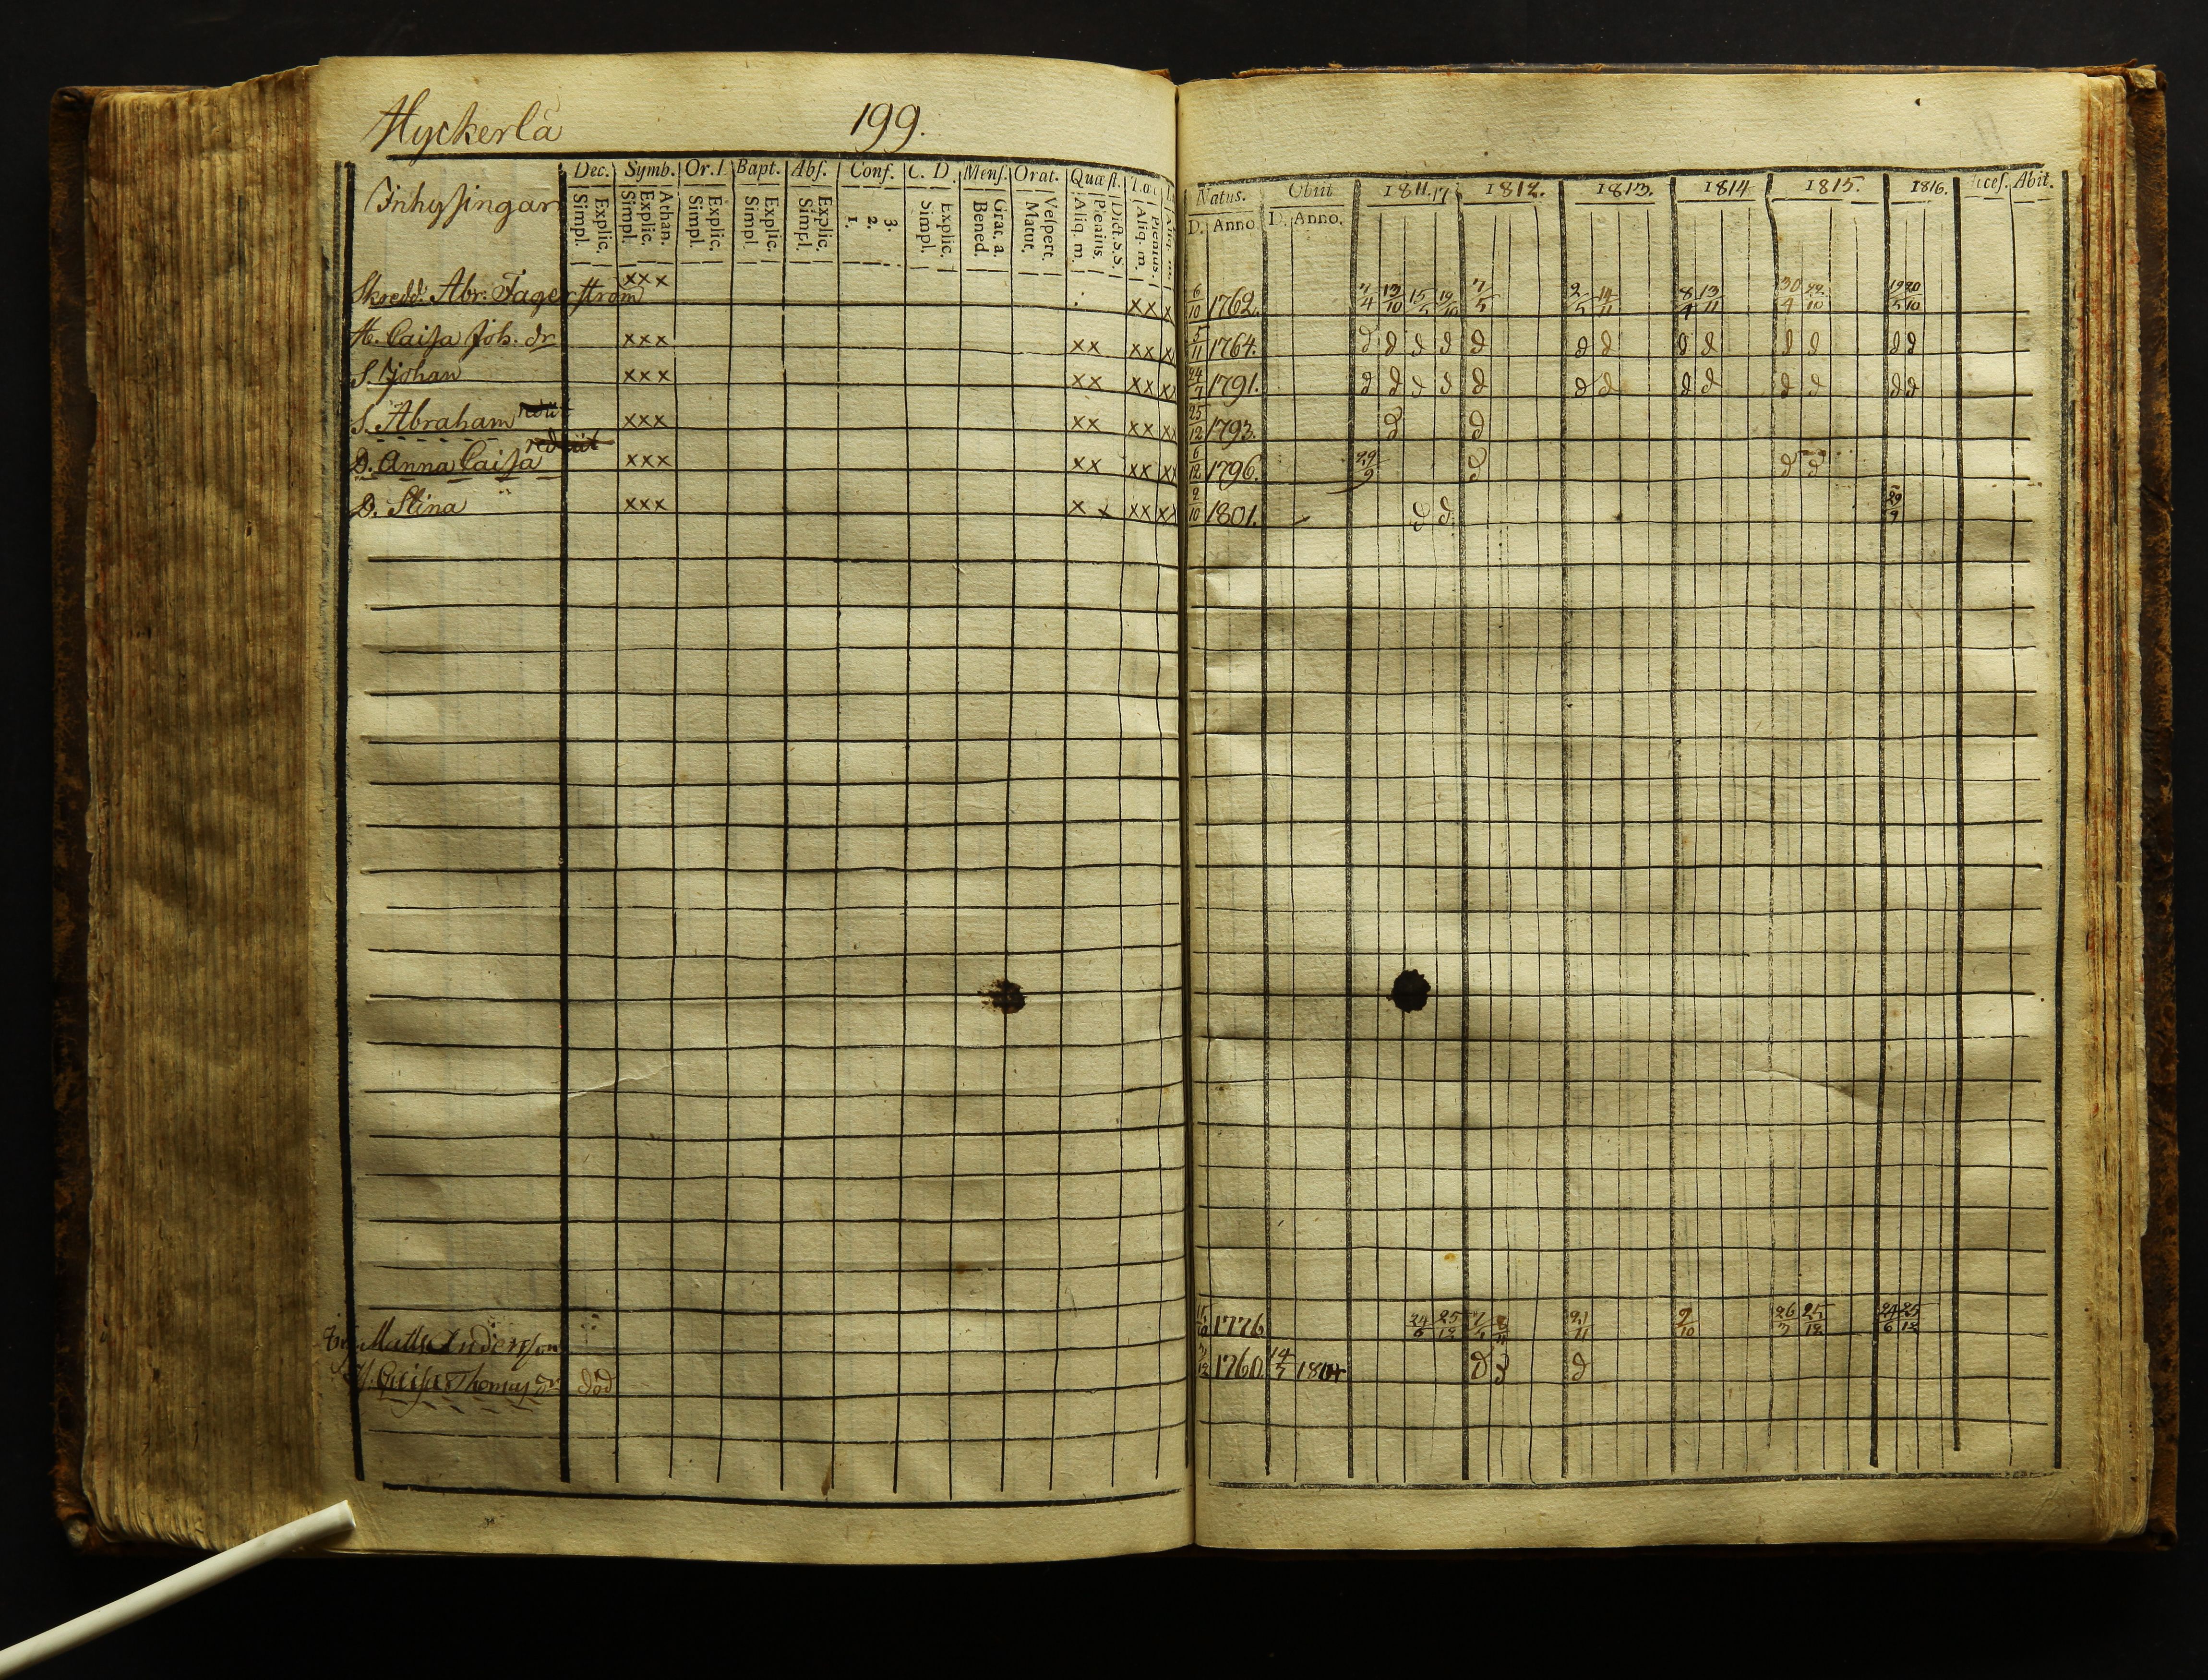 Hyckerlä 199.
Inhysingar Dec. Symb. Or. 1 Bapt. Abs. Conf. C. D. Mens. Orat. Quæst. Natus. Obiit 1811. 17 1812. 1813. 1814 1815. 1816. Abit.
Explic. Simpl. Athan. Explic. Simpl. Explic. Simpl. Explic. Simpl. Explic. Simpl. 3. 2. 1. Explic. Simpl. Grat. a. Bened. Vespert. Matut. Dict. S. S. Plenius. Aliq. m. Plenius. Aliq. m. D. Anno D. Anno.
Skredd. Abr. Fagerström xxx xx x 6/10 1762. 7/4 13/10 15/5 19/10 7/5 2/5 14/11 8/4 13/11 30/4 22/10 19/5 20/10
H. Caisa Joh. dr xxx xx xx x 5/11 1764. d d d d d d d d d d d d d
S. Johan xxx xx xx xx 24/7 1791. d d d d d d d d d d d d d
S. Abraham xxx xx xx xx 25/12 1793. d d
D. Anna Caisa rediit xxx xx xx xx 6/12 1796. 29/9 d d d
D. Stina xxx x x xx xx 2/10 1801. d d 29/9
Matts Andersson 1776 24/6 25/12 21/11 2/10 26/7 25/12 24/6 25/12
H. Caisa Thomas dr död 1760 14/7 1814 d d d